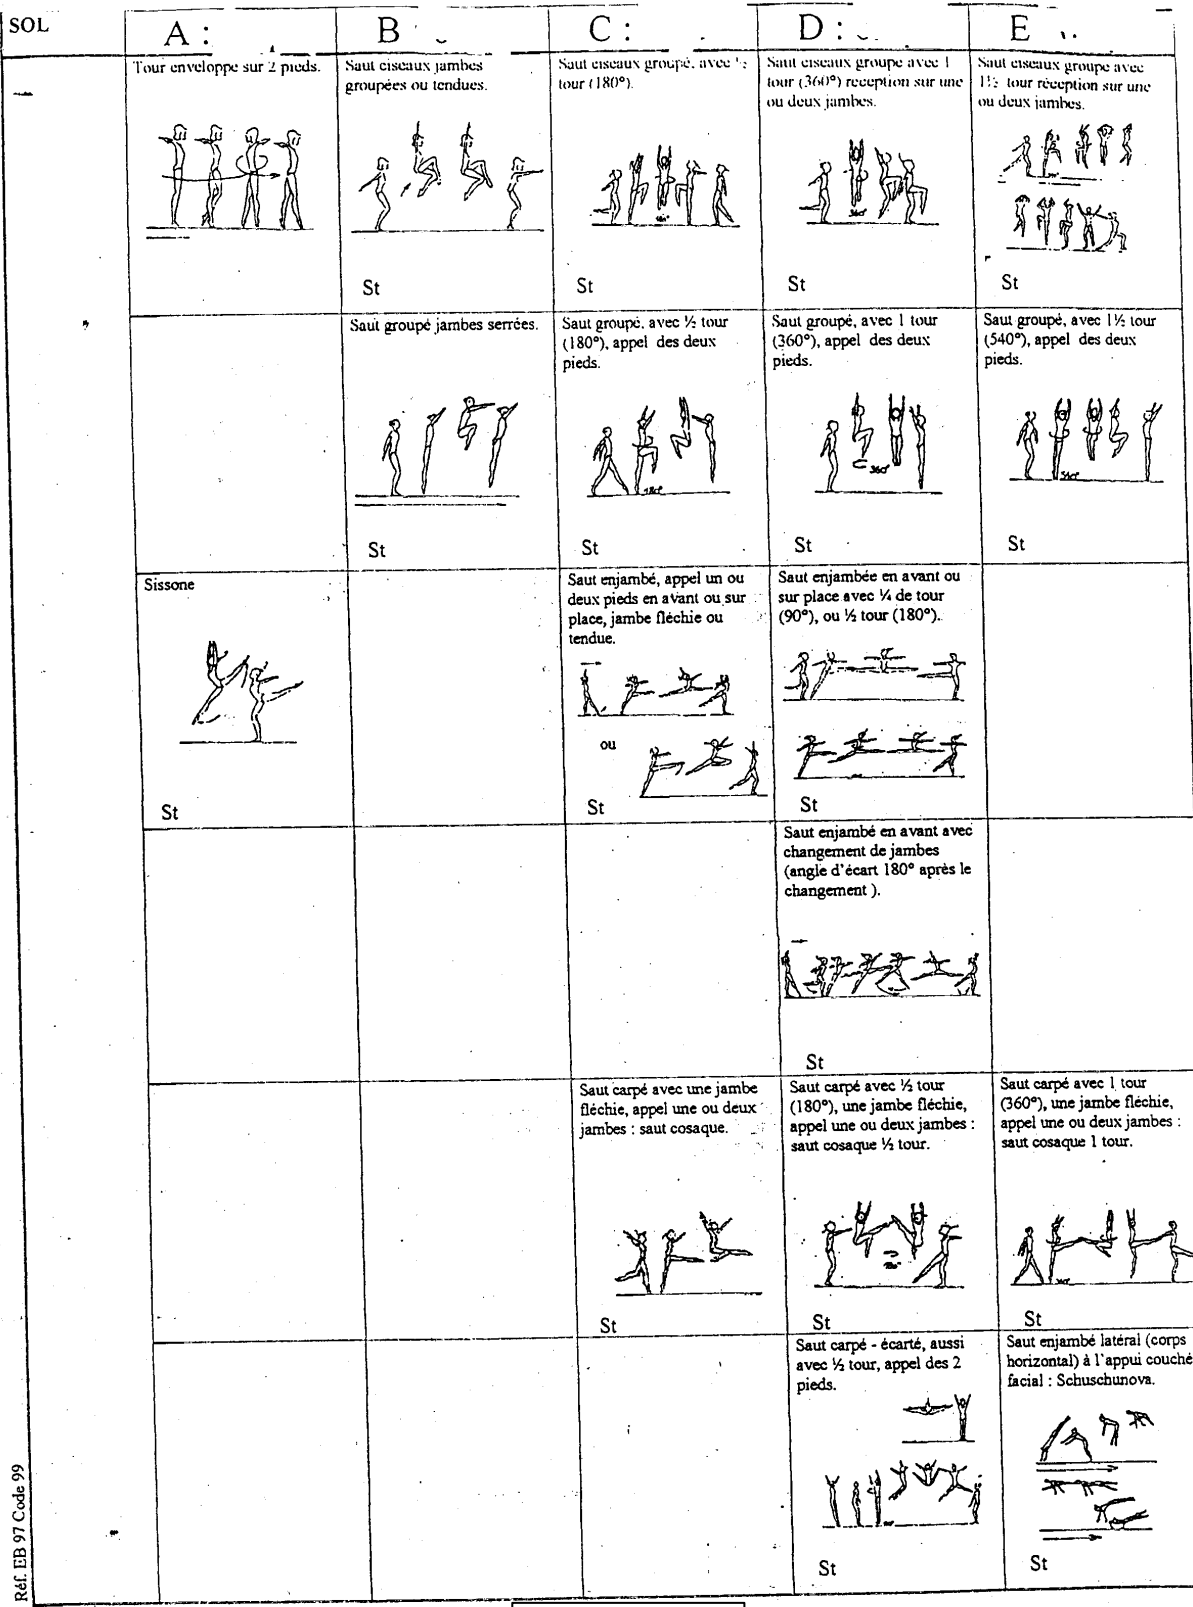 SOL
A :
B
C :
D :
E
Tour enveloppe sur 2 pieds.
Saut ciseaux jambes
groupées ou tendues.
St
Saut ciseaux groupé, avec ½
tour (180°).
180°
St
Saut ciseaux groupé avec 1
tour (360°) reception sur une
ou deux jambes.
360°
St
Saut ciseaux groupe avec
1½ tour réception sur une
ou deux jambes.
St
Saut groupé jambes serrées.
St
Saut groupé, avec ½ tour
(180°), appel des deux
pieds.
180°
St
Saut groupé, avec 1 tour
(360°), appel des deux
pieds.
360°
St
Saut groupé, avec 1½ tour
(540°), appel des deux
pieds.
540°
St
Sissone
St
Saut enjambé, appel un ou
deux pieds en avant ou sur
place, jambe fléchie ou
tendue.
ou
St
Saut enjambée en avant ou
sur place avec ¼ de tour
(90°), ou ½ tour (180°).
St
Saut enjambé en avant avec
changement de jambes
(angle d'écart 180° après le
changement ).
St
Saut carpé avec une jambe
fléchie, appel une ou deux
jambes : saut cosaque.
St
Saut carpé avec ½ tour
(180°), une jambe fléchie,
appel une ou deux jambes :
saut cosaque ½ tour.
180°
St
Saut carpé avec 1 tour
(360°), une jambe fléchie,
appel une ou deux jambes :
saut cosaque 1 tour.
360°
St
Saut carpé - écarté, aussi
avec ½ tour, appel des 2
pieds.
St
Saut enjambé latéral (corps
horizontal) à l'appui couché
facial : Schuschunova.
St
Réf. EB 97 Code 99